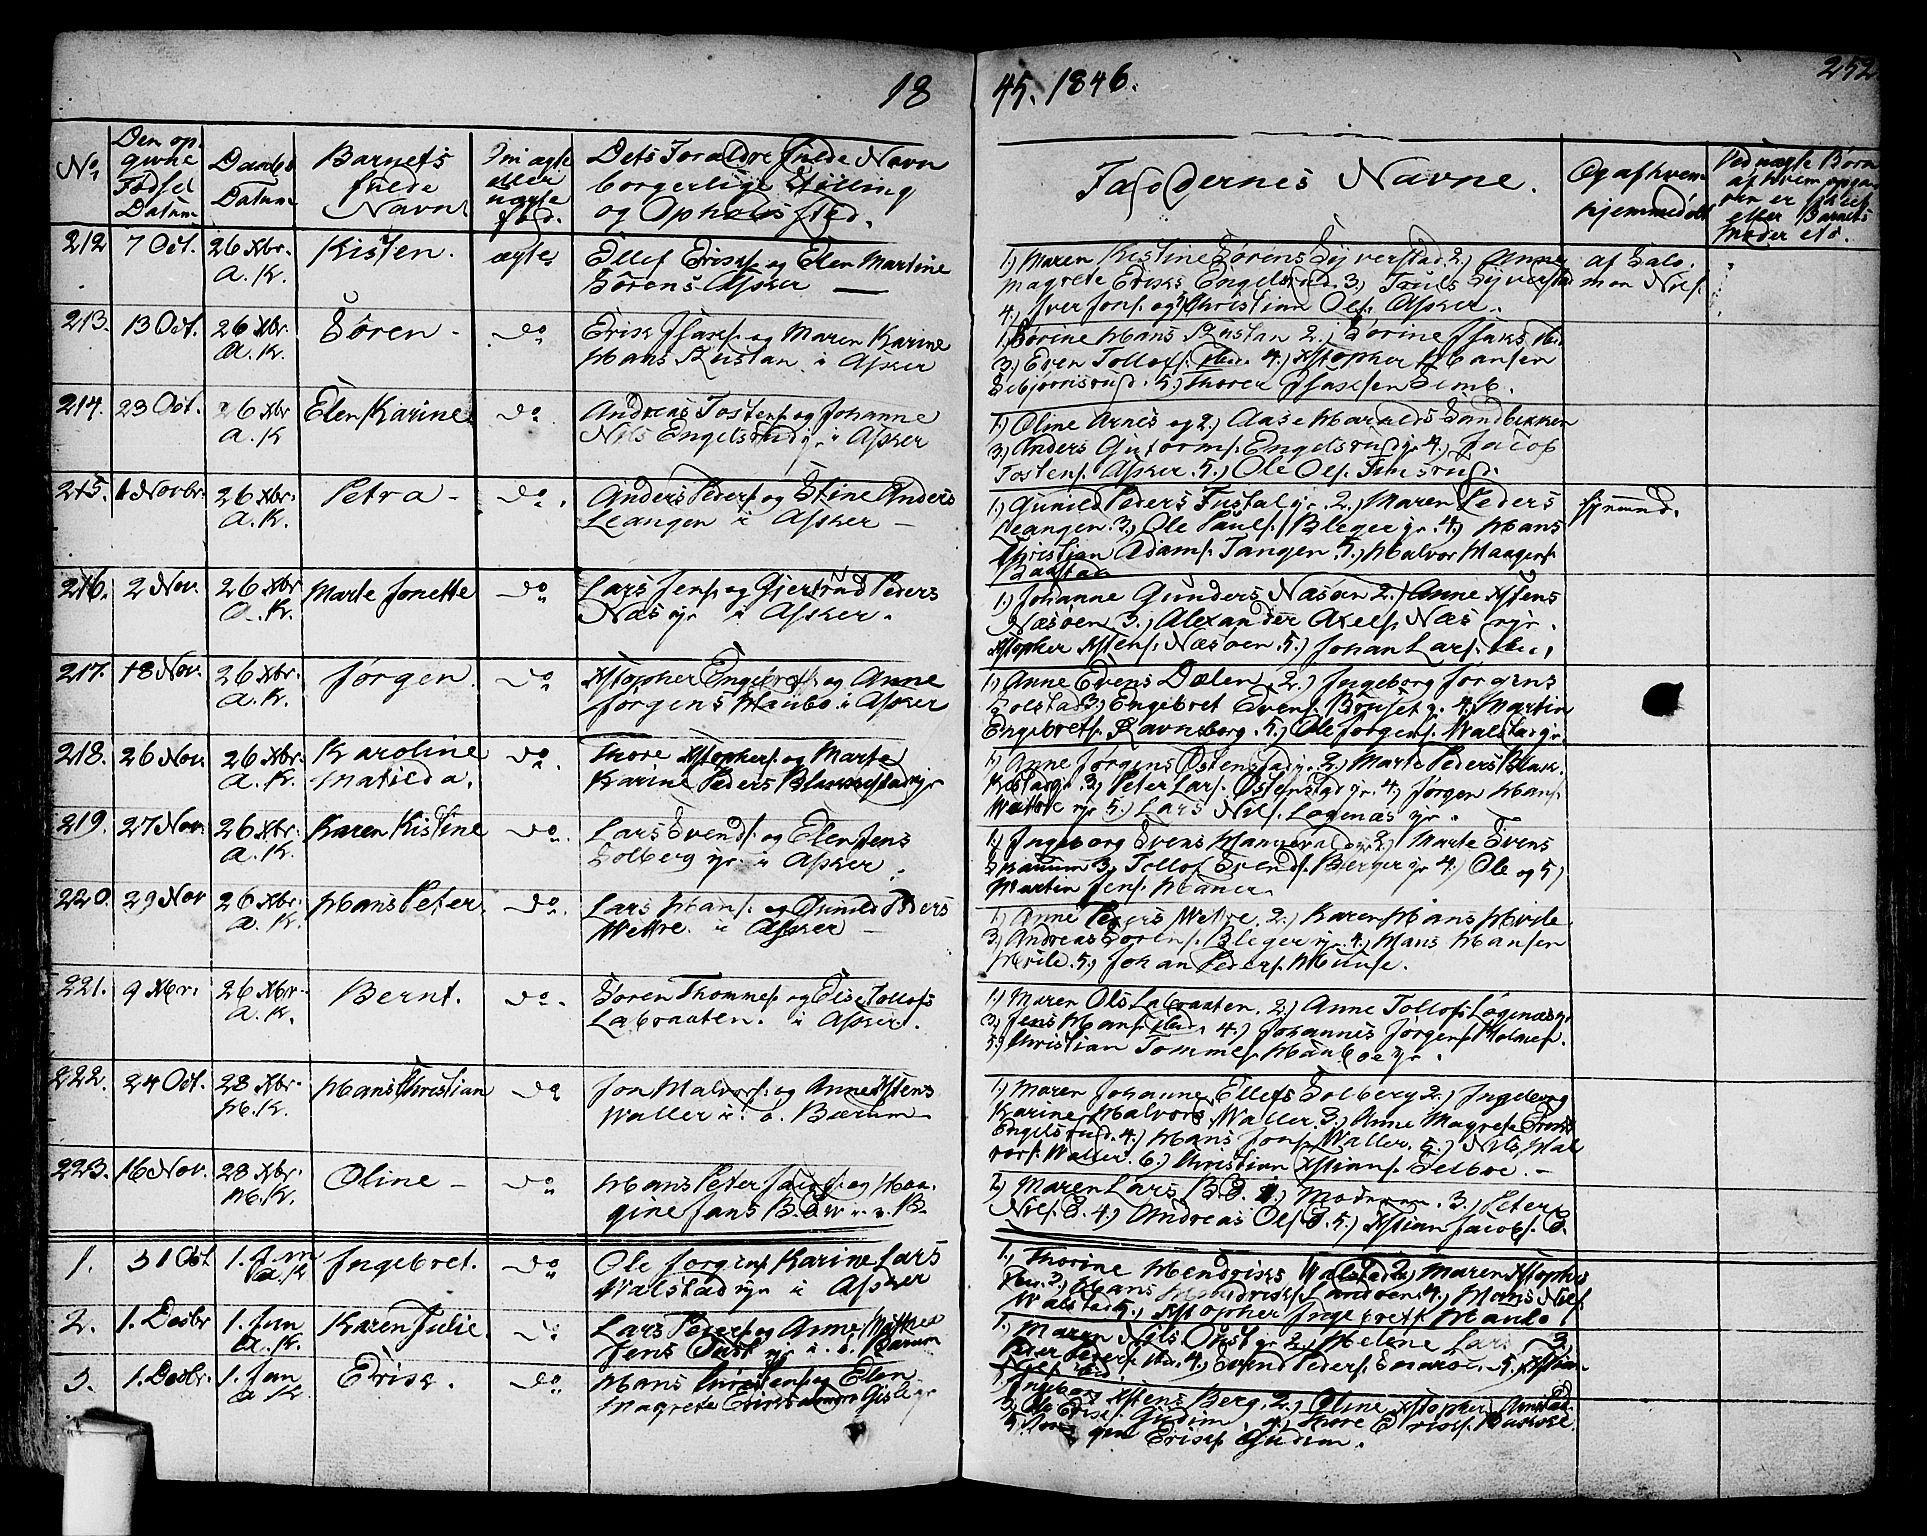 1845. 1846.
252
No
Den op-
givne
Fødsel
Datum
Daabs
Datum
Barnets
fulde
Navn
Om ægte
eller
uægte
fød.
Dets Foraldre fulde Navn
borgerlige Stilling
og Opholds Sted.
Faddernes Navne.
Og af hvem
hjemmedøbt
Ved uægte Børn
af hvem
eller Barnets
Moder etc.
212 7 Oct. 26 Xbr. Kisten. ægte Ellef Eriks. og Elen Martine
A. K. Sörens Asker —
1.) Maren Kistine Sörens Syverstad. 2.) Anne af Salo-
Magrete Eriks Engelsrud. 3.) Truls Syverstad mon Niels.
4.) Iver Jons. og 5.) Christian Ols. Asker.
213. 13 Oct. 26 Xbr. Sören - do Erik Isaks. og Maren Karine
A. K. Hans Rustan i Asker
1.) Sörine Hans Rustan 2.) Sörine Isaks ibid
3.) Even Tollofs. ibid. 4.) Xstopher Hansen
5.) Thorer Isaksen Semb.
214. 23 Oct. 26 Xbr Elen Karine do Andreas Tostens. og Johanne
A. K Nils Engelsrud yr. i Asker
1.) Oline Arnes og 2.) Aase Haralds Sandbekken
3.) Anders Gutorms. Engelsrud yr. 4.) Jacob
Tostens. Asker. 5.) Ole Ols.
215. 1 Novbr. 26 Xbr. Petra - do. Anders Peders. og Stine Anders
A. K. Leangen i Asker -
1.) Gunild Peders yr. 2.) Maren Peders
Leangen. 3.) Ole Pauls. Bleger yr. 4.) Hans
Christian Adams. Tangen. 5.) Halvor Haagens.
Baastad
216. 2 Nov. 26 Xbr Marte Jonette do Lars Jens. og Gjertrud Peders
A. K. Næs yr. i Asker.
1.) Johanne Gunders Næsöen 2.) Anne Xstens
Næsöen. 3.) Alexander Axels. Næs yr.
Xstopher Xstens. Næsöen. 5.) Johan Lars. ibid.
217. 18 Nov. 26 Xbr. Jørgen. do Xstopher Engebrets. og Anne
A. K. Jørgens Haugbo i Asker
1.) Anne Evens Dælen. 2.) Ingeborg Jørgens
Solstad 3.) Engebret Evens. Bruset y. 4.) Martin
Engebrets. Ravnsborg. 5.) Ole Jørgens. Walstad yr.
218. 26 Nov. 26 Xbr. Karoline do. Thore Xstophers. og Marte
A. K. Matilda. Karine Peders Blakkestad yr
1.) Anne Jørgens Østenstad yr. 2.) Marte Peders Blak-
kestad yr. 3.) Peter Lars. Østenstad yr. 4.) Jørgen Hans.
Wættre yr 5.) Lars Niels. Løgenæs yr.
219. 27 Nov. 26 Xbr. Karen Kistine do. Lars Svends. og Elen Jens
A. K. Solberg yr. i Asker.
1.) Ingeborg Svens 2.) Marte Svens
3.) Tollof Svends. Berger yr 4.) Ole og 5.)
Martin Jens. Haner
220. 29 Nov 26 Xbr Hans Peter. do. Lars Hans. og Gunild Peders
A. K. Wettre. i Asker -
1.) Anne Peders Wettre. 2.) Karen Hans Hvile
3.) Andreas Sörens. Bleger yr. 4.) Hans Hansen
Hvile. 5.) Johan Peders.
221. 9 Xbr. 26 Xbr. Bernt. do. Sören Thommes. og Elise Tollofs
A. K. Labraaten. i Asker.
1.) Maren Ols Labraaten. 2.) Anne Tollofs Løgenæs yr
3.) Jens Hans. ibid. 4.) Johannes Jørgens. Holmen.
5.) Christian Tommes. Haugboe yr.
222. 24 Oct. 28 Xbr. Hans Christian do Jon Halvors. og Anne Xstens
H. K. Waller i ö. Bærum -
1.) Maren Johanne Ellefs Solberg 2.) Ingeborg
Karine Halvors Waller. 3.) Anne Magrete
Engelsrud. 4.) Hans Jons. Waller. 5.) Nils Hal-
vors. Waller. 6.) Christian Xstians. -
223. 16 Nov. 28 Xbr. Oline - do Hans Peter Jacobs. og Haa-
H. K. gine Jans
2.) Maren Lars 1.) Modrum. 3.) Peter
Niels. 4.) Andreas Ols. 5.) Xstian Jacobs.
1. 31 Oct 1. Jan Ingebret. do Ole Jørgens. Karine Lars
A. K Walstad yr i Asker
1.) Thorine Hendriks Walstad 2.) Maren Xstophers
3.) Hans Hendriks. Sandöen. 4.) Hans Niels.
Walstad 5.) Xstopher Ingebrets. Haugbo
2. 1. Decbr 1. Jan Karen Julie. do Lars Peders. og Anne
A. K. Jens i ö. Bærum
1.) Maren Nils 2.) Helene Lars 3.)
Peder Peders. ibid. 4.) Svend Peders. 5.) Xstian
Niels. ibid.
3. 1. Decbr. 1. Jan Erik. do Hans Christens. og Elen
A. K. Magrete Eriks
1.) Ingeborg Xstens Berg. 2.) Oline Xstopher
3.) Ole Eriks. Gudim. 4.) Thore Eriks.
5.) Erik Gudim.